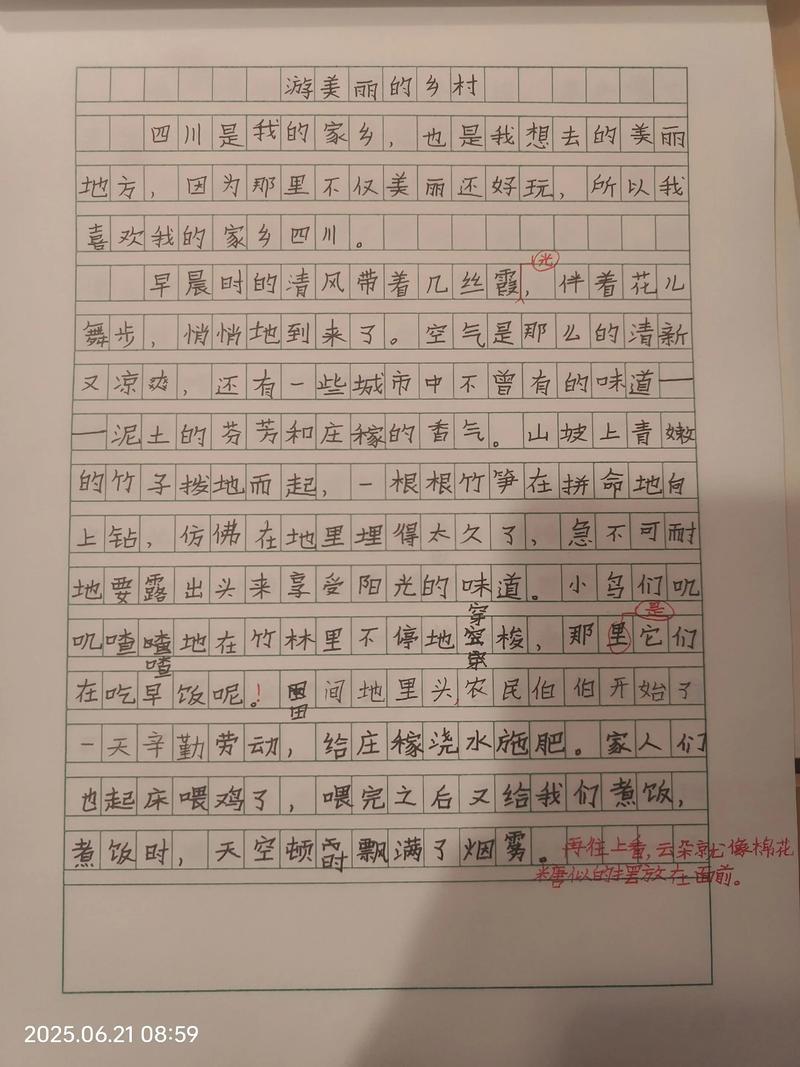 游美丽的乡村
四川是我的家乡，也是我想去的美丽
地方，因为那里不仅美丽还好玩，所以我
喜欢我的家乡四川。
光
早晨时的清风带着几丝霞，伴着花儿
舞步，悄悄地到来了。空气是那么的清新
又凉爽，还有一些城市中不曾有的味道—
—泥土的芬芳和庄稼的香气。山坡上青嫩
的竹子拨地而起，一根根竹笋在拼命地向
上钻，仿佛在地里埋得太久了，急不可耐
地要露出头来享受阳光的味道。小鸟们叽
是
叽喳喳地在竹林里不停地穿梭，那里它们
在吃早饭呢！田间地里头，农民伯伯开始了
一天辛勤劳动，给庄稼浇水施肥。家人们
也起床喂鸡了，喂完之后又给我们煮饭，
煮饭时，天空顿时飘满了烟雾。再往上看，云朵就像棉花
糖似的摆放在面前。
2025.06.21 08:59